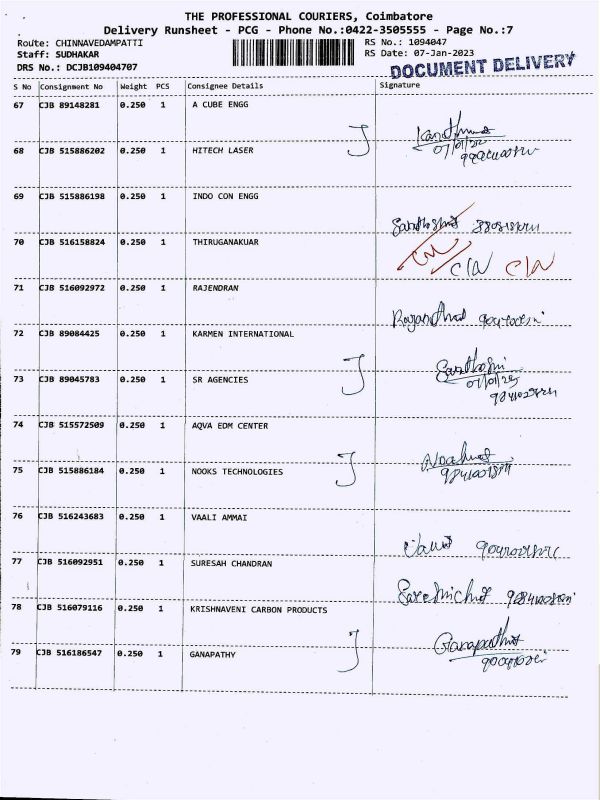 THE PROFESSIONAL COURIERS, Coimbatore
Delivery Runsheet - PCG - Phone No.:0422-3505555 - Page No.:7
Route: CHINNAVEDAMPATTI RS No.: 1094047
Staff: SUDHAKAR RS Date: 07-Jan-2023
DRS No.: DCJB109404707 DOCUMENT DELIVERY
S No Consignment No Weight PCS Consignee Details Signature
67 CJB 89148281 0.250 1 A CUBE ENGG
68 CJB 515886202 0.250 1 HITECH LASER
69 CJB 515886198 0.250 1 INDO CON ENGG
70 CJB 516158824 0.250 1 THIRUGANAKUAR
C/N C/N
71 CJB 516092972 0.250 1 RAJENDRAN
72 CJB 89084425 0.250 1 KARMEN INTERNATIONAL
73 CJB 89045783 0.250 1 SR AGENCIES
74 CJB 515572509 0.250 1 AQVA EDM CENTER
75 CJB 515886184 0.250 1 NOOKS TECHNOLOGIES
76 CJB 516243683 0.250 1 VAALI AMMAI
77 CJB 516092951 0.250 1 SURESAH CHANDRAN
78 CJB 516079116 0.250 1 KRISHNAVENI CARBON PRODUCTS
79 CJB 516186547 0.250 1 GANAPATHY